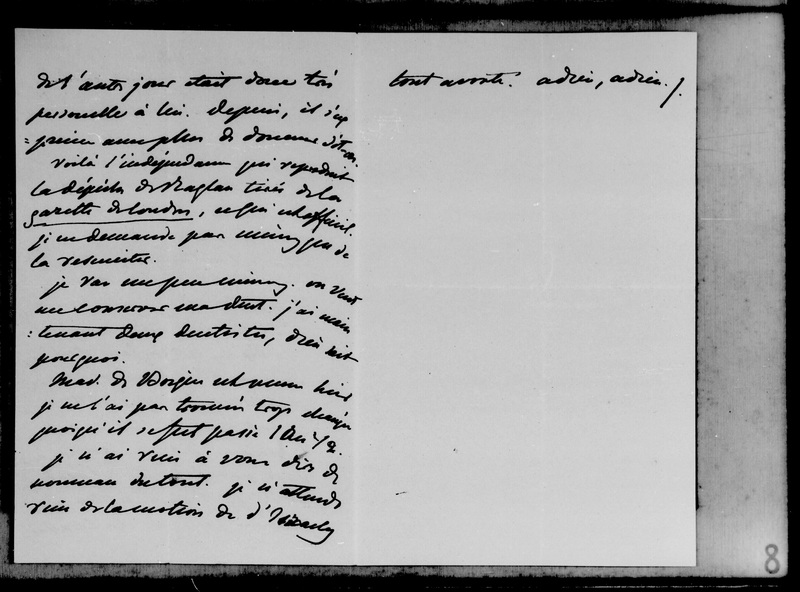 de l'autre jour était donc très
personnelle à lui. depuis, il s'ex
=prime avec plus de
voilà l'indépendance qui reproduit
la dépêche de Raglan tirée de la
gazette de Londres, ce qui est officiel.
je ne demande pas mieux que de
la
je vais un peu mieux. on veut
me conserver ma dent. j'ai main
=tenant deux dentistes, dieu sait
pourquoi.
Mad. de est venue hier
je ne l'ai pas trouvée trop changée
quoiqu'il se soit passé 1 an 1/2.
je n'ai rien à vous dire de
nouveau du tout. je n'attends
rien de la motion de d'Israely
tout avorte. adieu, adieu.
8